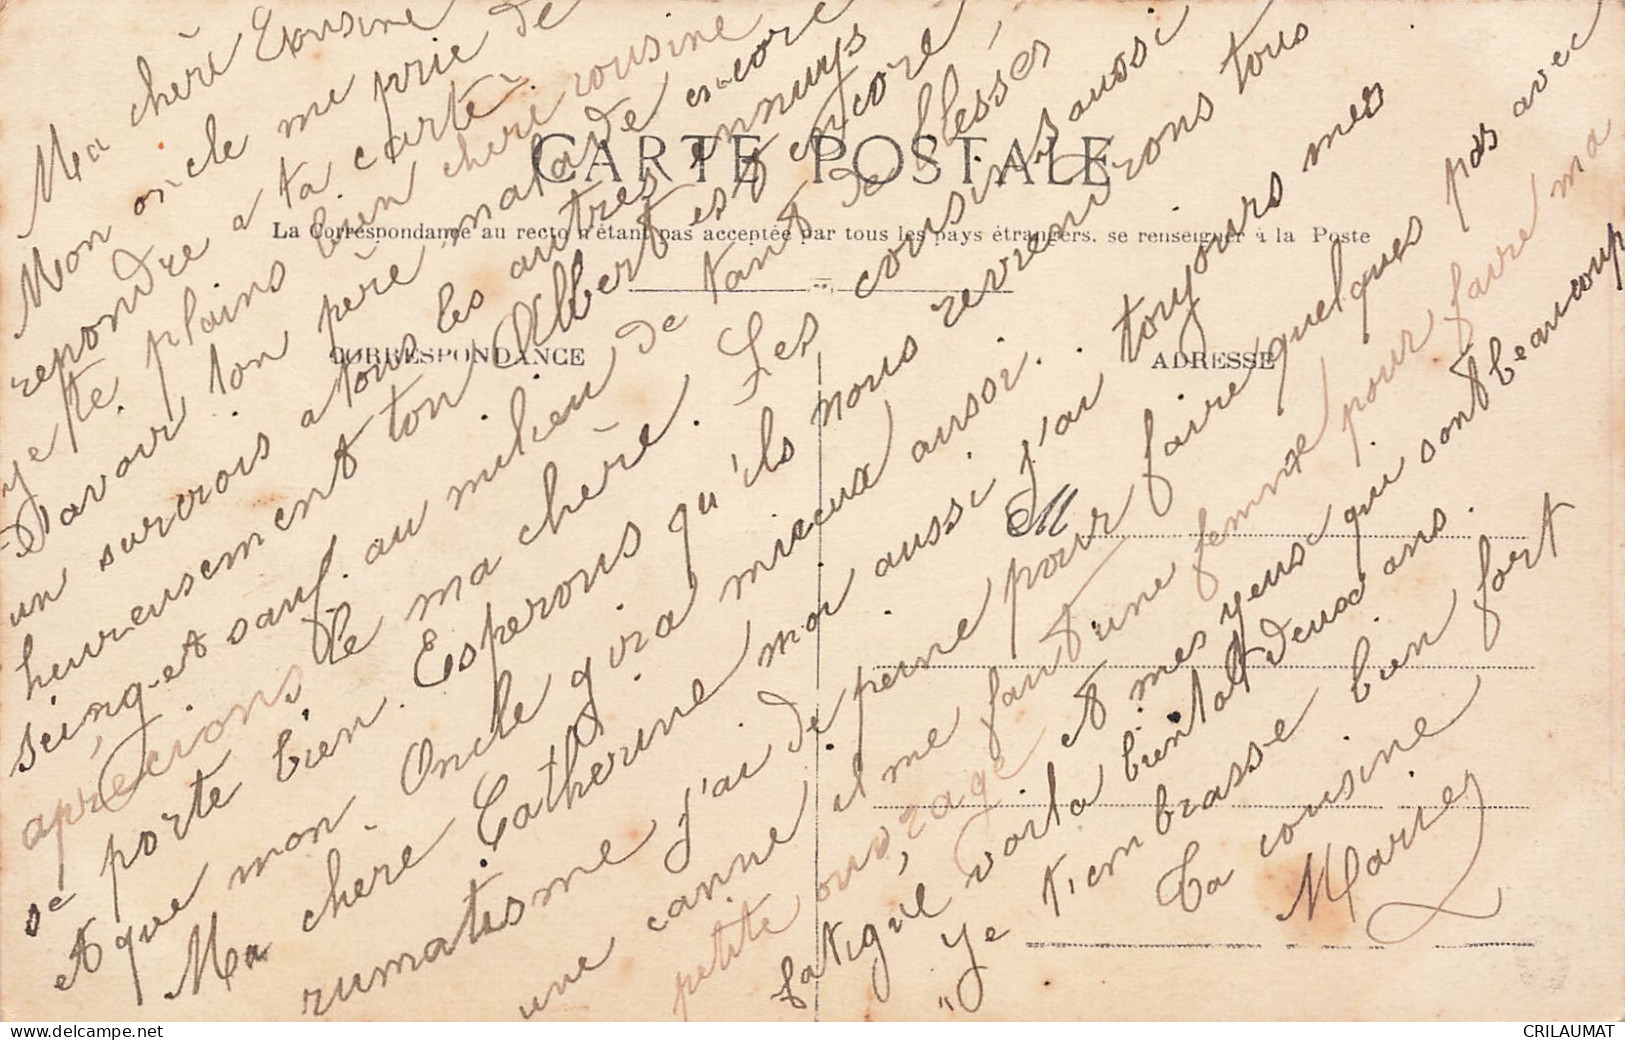 CARTE POSTALE
La Correspondance au recto n'étant pas acceptée par tous les pays étrangers, se renseigner à la Poste
CORRESPONDANCE
ADRESSE
M
Ma chère Cousine
Mon oncle me prie de
repondre a ta carte
je te plains bien chere cousine
D'avoir ton père malade encore
un surcrois a tous les autres ennuys
heureusement ton Albert est encore
seing et sauf au milieu de tant de blessés
aprecions le ma chère. Les cousins aussi
se porte bien. Esperons qu'ils nous revenirons tous
et que mon Oncle gira mieux aussi.
Ma chère Catherine moi aussi j'ai toujours mes
rumatisme j'ai de peine pour faire quelques pas avec
une canne il me faut une femme pour faire ma
petite ouvrage et mes yeux qui sont beaucoup
fatigué voila bientot deux ans.
Je t'embrasse bien fort
Ta cousine
Marie
www.delcampe.net
CRILAUMAT